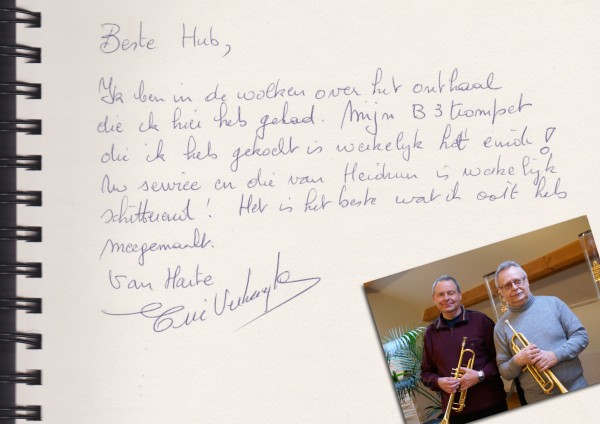 Beste Hub,
Ik ben in de wolken over het onthaal
die ik hier heb gehad. Mijn B3 trompet
die ik heb gekocht is werkelijk het einde!
Uw service en die van Heidrun is werkelijk
schitterend! Het is het beste wat ik ooit heb
meegemaakt.
Van Harte
Eric